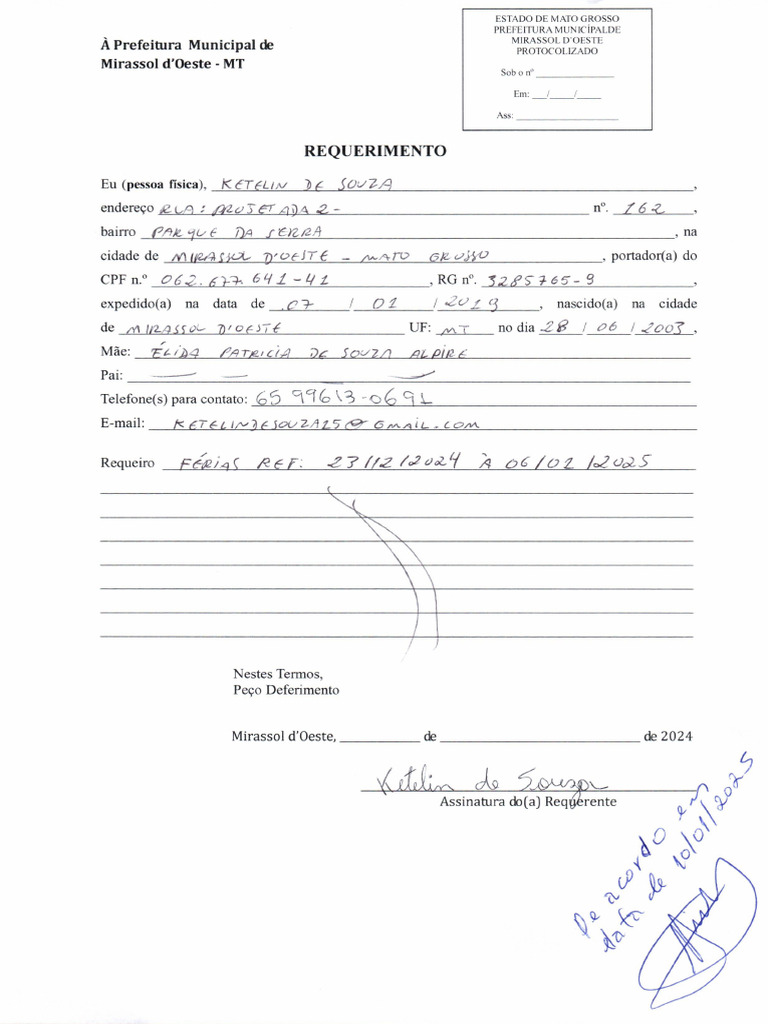 À Prefeitura Municipal de
Mirassol d'Oeste - MT
ESTADO DE MATO GROSSO
PREFEITURA MUNICÍPALDE
MIRASSOL D'OESTE
PROTOCOLIZADO
Sob o nº ________________
Em: ___/_____/_____
Ass: _____________________
REQUERIMENTO
Eu (pessoa física), KETELIN DE SOUZA,
endereço RUA: PROJETADA 2- nº. 162,
bairro PARQUE DA SERRA, na
cidade de MIRASSOL D'OESTE - MATO GROSSO, portador(a) do
CPF n.º 062.677.641-41, RG nº. 3285765-9
expedido(a) na data de 07 / 01 / 2019, nascido(a) na cidade
de MIRASSOL D'OESTE UF: MT no dia 28 / 06 / 2003,
Mãe: ÉLIDA PATRICIA DE SOUZA ALPIRE
Pai:
Telefone(s) para contato: 65 99613-0691
E-mail: KETELINDESOUZA25@GMAIL.COM
Requeiro FÉRIAS REF: 23/12/2024 À 06/01/2025
Nestes Termos,
Peço Deferimento
Mirassol d'Oeste, ____________ de ______________________________ de 2024
Ketelin de Souza
Assinatura do(a) Requerente
De acordo em
data de 10/01/2025